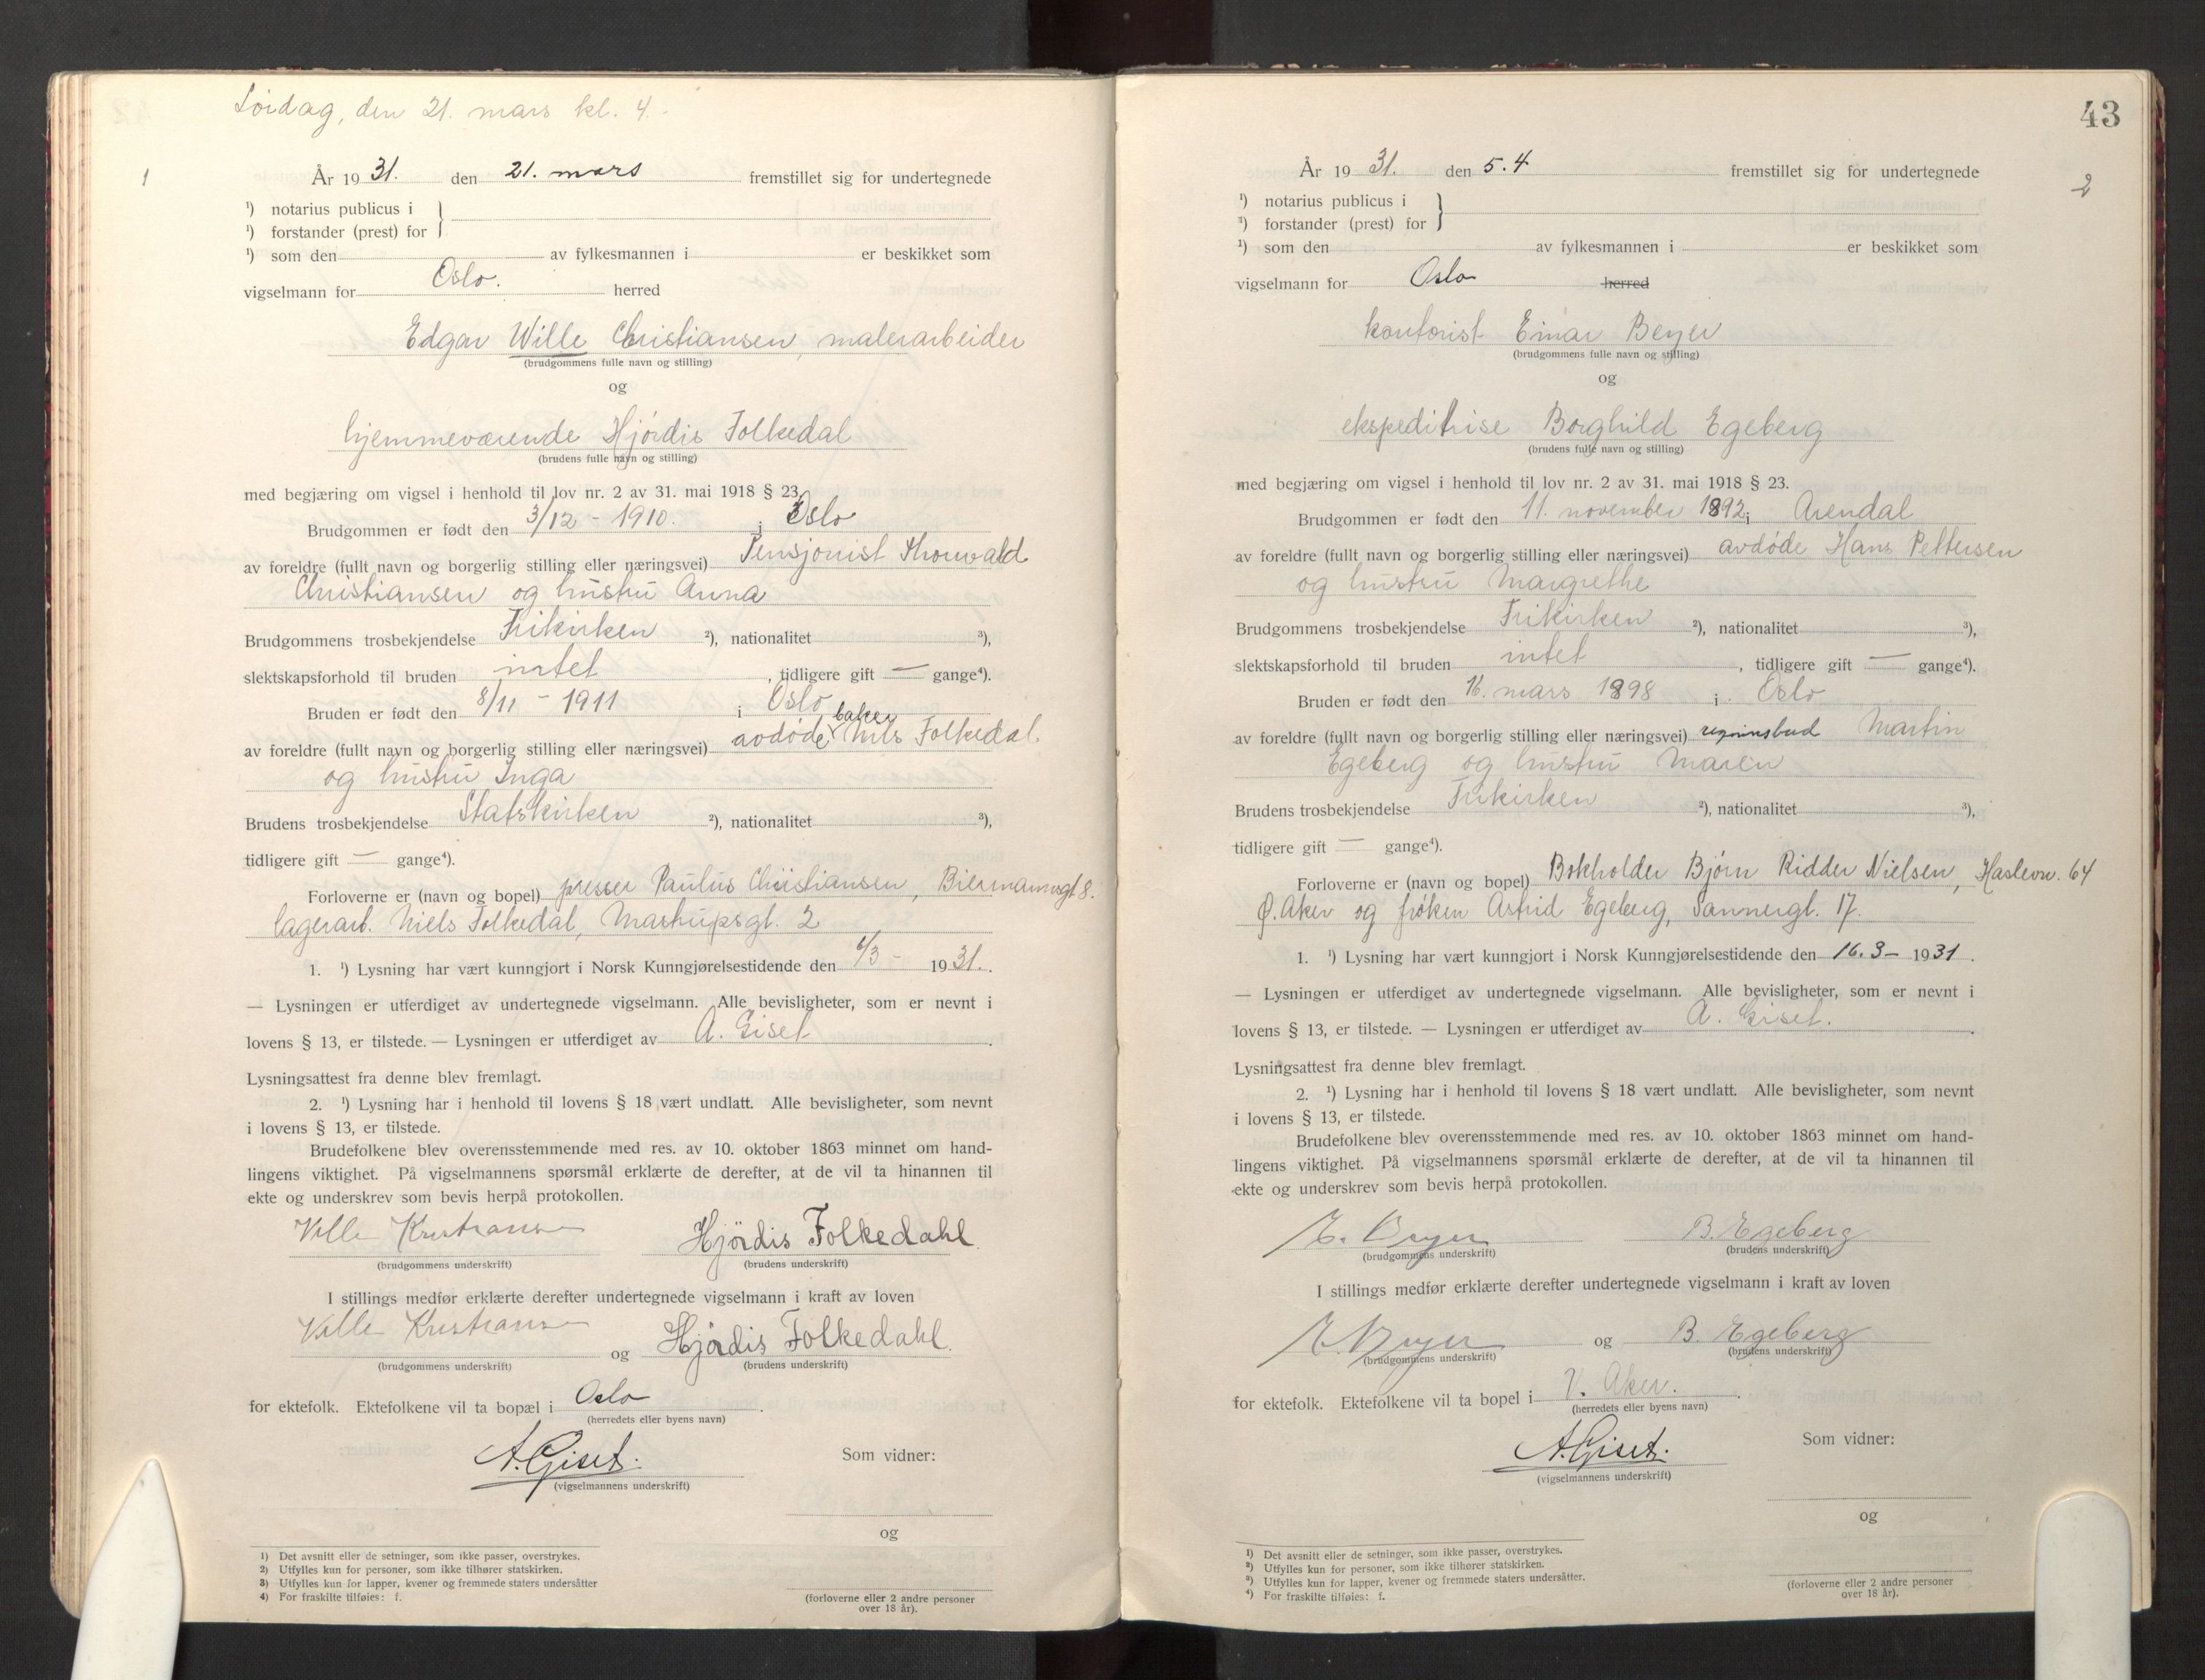 Lørdag, den 21. mars kl. 4.
1
År 1931. den 21. mars fremstillet sig for undertegnede
¹) notarius publicus i
¹) forstander (prest) for
¹) som den av fylkesmannen i er beskikket som
vigselmann for Oslo. herred
Edgar Wille Christiansen, malerarbeider
(brudgommens fulle navn og stilling)
og
hjemmeværende Hjördis Folkedal
(brudens fulle navn og stilling)
med begjæring om vigsel i henhold til lov nr. 2 av 31. mai 1918 § 23.
Brudgommen er født den 3/12 - 1910. i Oslo
av foreldre (fullt navn og borgerlig stilling eller næringsvei) Pensjonist Thorvald
Christiansen og hustru Anna
Brudgommens trosbekjendelse Frikirken ²), nationalitet ³),
slektskapsforhold til bruden intet, tidligere gift — gange⁴).
Bruden er født den 8/11 - 1911 i Oslo
baker
av foreldre (fullt navn og borgerlig stilling eller næringsvei) avdøde Nils Folkedal
og hustru Inga
Brudens trosbekjendelse Statskirken ²), nationalitet ³),
tidligere gift — gange⁴).
Forloverne er (navn og bopel) presser Paulus Christiansen, Biermannsgt 8.
lagerarb. Niels Folkedal, Mastrupsgt. 2
1. ¹) Lysning har vært kunngjort i Norsk Kunngjørelsestidende den 6/3 - 1931.
— Lysningen er utferdiget av undertegnede vigselmann. Alle bevisligheter, som er nevnt i
lovens § 13, er tilstede. — Lysningen er utferdiget av A. Giset.
Lysningsattest fra denne blev fremlagt.
2. ¹) Lysning har i henhold til lovens § 18 vært undlatt. Alle bevisligheter, som nevnt
i lovens § 13, er tilstede.
Brudefolkene blev overensstemmende med res. av 10. oktober 1863 minnet om hand-
lingens viktighet. På vigselmannens spørsmål erklærte de derefter, at de vil ta hinannen til
ekte og underskrev som bevis herpå protokollen.
Ville Kristianse Hjördis Folkedahl
(brudgommens underskrift) (brudens underskrift)
I stillings medfør erklærte derefter undertegnede vigselmann i kraft av loven
Ville Kristianse og Hjördis Folkedahl.
(brudgommens underskrift) (brudens underskrift)
for ektefolk. Ektefolkene vil ta bopæl i Oslo.
(herredets eller byens navn)
A. Giset. Som vidner:
(vigselmannens underskrift)
og
(forloverne eller 2 andre personer
over 18 år).
1) Det avsnitt eller de setninger, som ikke passer, overstrykes.
2) Utfylles kun for personer, som ikke tilhører statskirken.
3) Utfylles kun for lapper, kvener og fremmede staters undersåtter
4) For fraskilte tilføies: f.
43
2
År 1931. den 5.4 fremstillet sig for undertegnede
¹) notarius publicus i
¹) forstander (prest) for
¹) som den av fylkesmannen i er beskikket som
vigselmann for Oslo herred
kontorist Einar Beyer
(brudgommens fulle navn og stilling)
og
ekspeditrise Borghild Egeberg
(brudens fulle navn og stilling)
med begjæring om vigsel i henhold til lov nr. 2 av 31. mai 1918 § 23.
Brudgommen er født den 11. november 1892 i Arendal
av foreldre (fullt navn og borgerlig stilling eller næringsvei) avdøde Hans Pettersen
og hustru Margrethe
Brudgommens trosbekjendelse Frikirken ²), nationalitet ³),
slektskapsforhold til bruden intet, tidligere gift — gange⁴).
Bruden er født den 16. mars 1898 i Oslo
av foreldre (fullt navn og borgerlig stilling eller næringsvei) Martin
Egeberg og hustru Maren
Brudens trosbekjendelse Frikirken ²), nationalitet ³),
tidligere gift — gange⁴).
Forloverne er (navn og bopel) Bokholder Bjørn Ridder Nielsen, Haslevn. 64
Ø. Aker og frøken Astrid Egeberg, Sannergt. 17.
1. ¹) Lysning har vært kunngjort i Norsk Kunngjørelsestidende den 16.3 - 1931.
— Lysningen er utferdiget av undertegnede vigselmann. Alle bevisligheter, som er nevnt i
lovens § 13, er tilstede. — Lysningen er utferdiget av A. Giset.
Lysningsattest fra denne blev fremlagt.
2. ¹) Lysning har i henhold til lovens § 18 vært undlatt. Alle bevisligheter, som nevnt
i lovens § 13, er tilstede.
Brudefolkene blev overensstemmende med res. av 10. oktober 1863 minnet om hand-
lingens viktighet. På vigselmannens spørsmål erklærte de derefter, at de vil ta hinannen til
ekte og underskrev som bevis herpå protokollen.
E. Beyer B. Egeberg
(brudgommens underskrift) (brudens underskrift)
I stillings medfør erklærte derefter undertegnede vigselmann i kraft av loven
E. Beyer og B. Egeberg
(brudgommens underskrift) (brudens underskrift)
for ektefolk. Ektefolkene vil ta bopel i V. Aker.
(herredets eller byens navn)
A. Giset. Som vidner:
(vigselmannens underskrift)
og
(forloverne eller 2 andre personer
over 18 år).
¹) Det avsnitt eller de setninger, som ikke passer, overstrykes.
²) Utfylles kun for personer, som ikke tilhører statskirken.
³) Utfylles kun for lapper, kvener og fremmede staters undersåtter.
⁴) For fraskilte tilføies: f.